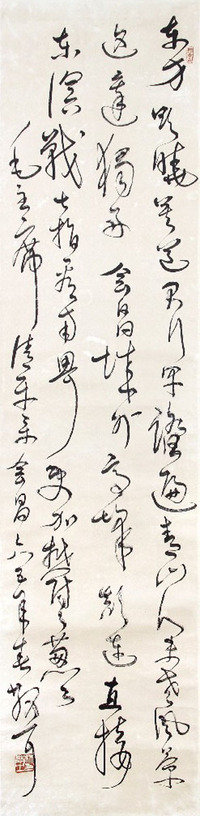 东方欲晓莫道君行早踏遍青山人未老风景
这边独好会昌城外高峰颠连直接
东溟战士指看南粤更加郁郁葱葱
毛主席清平乐会昌六五年春散耳